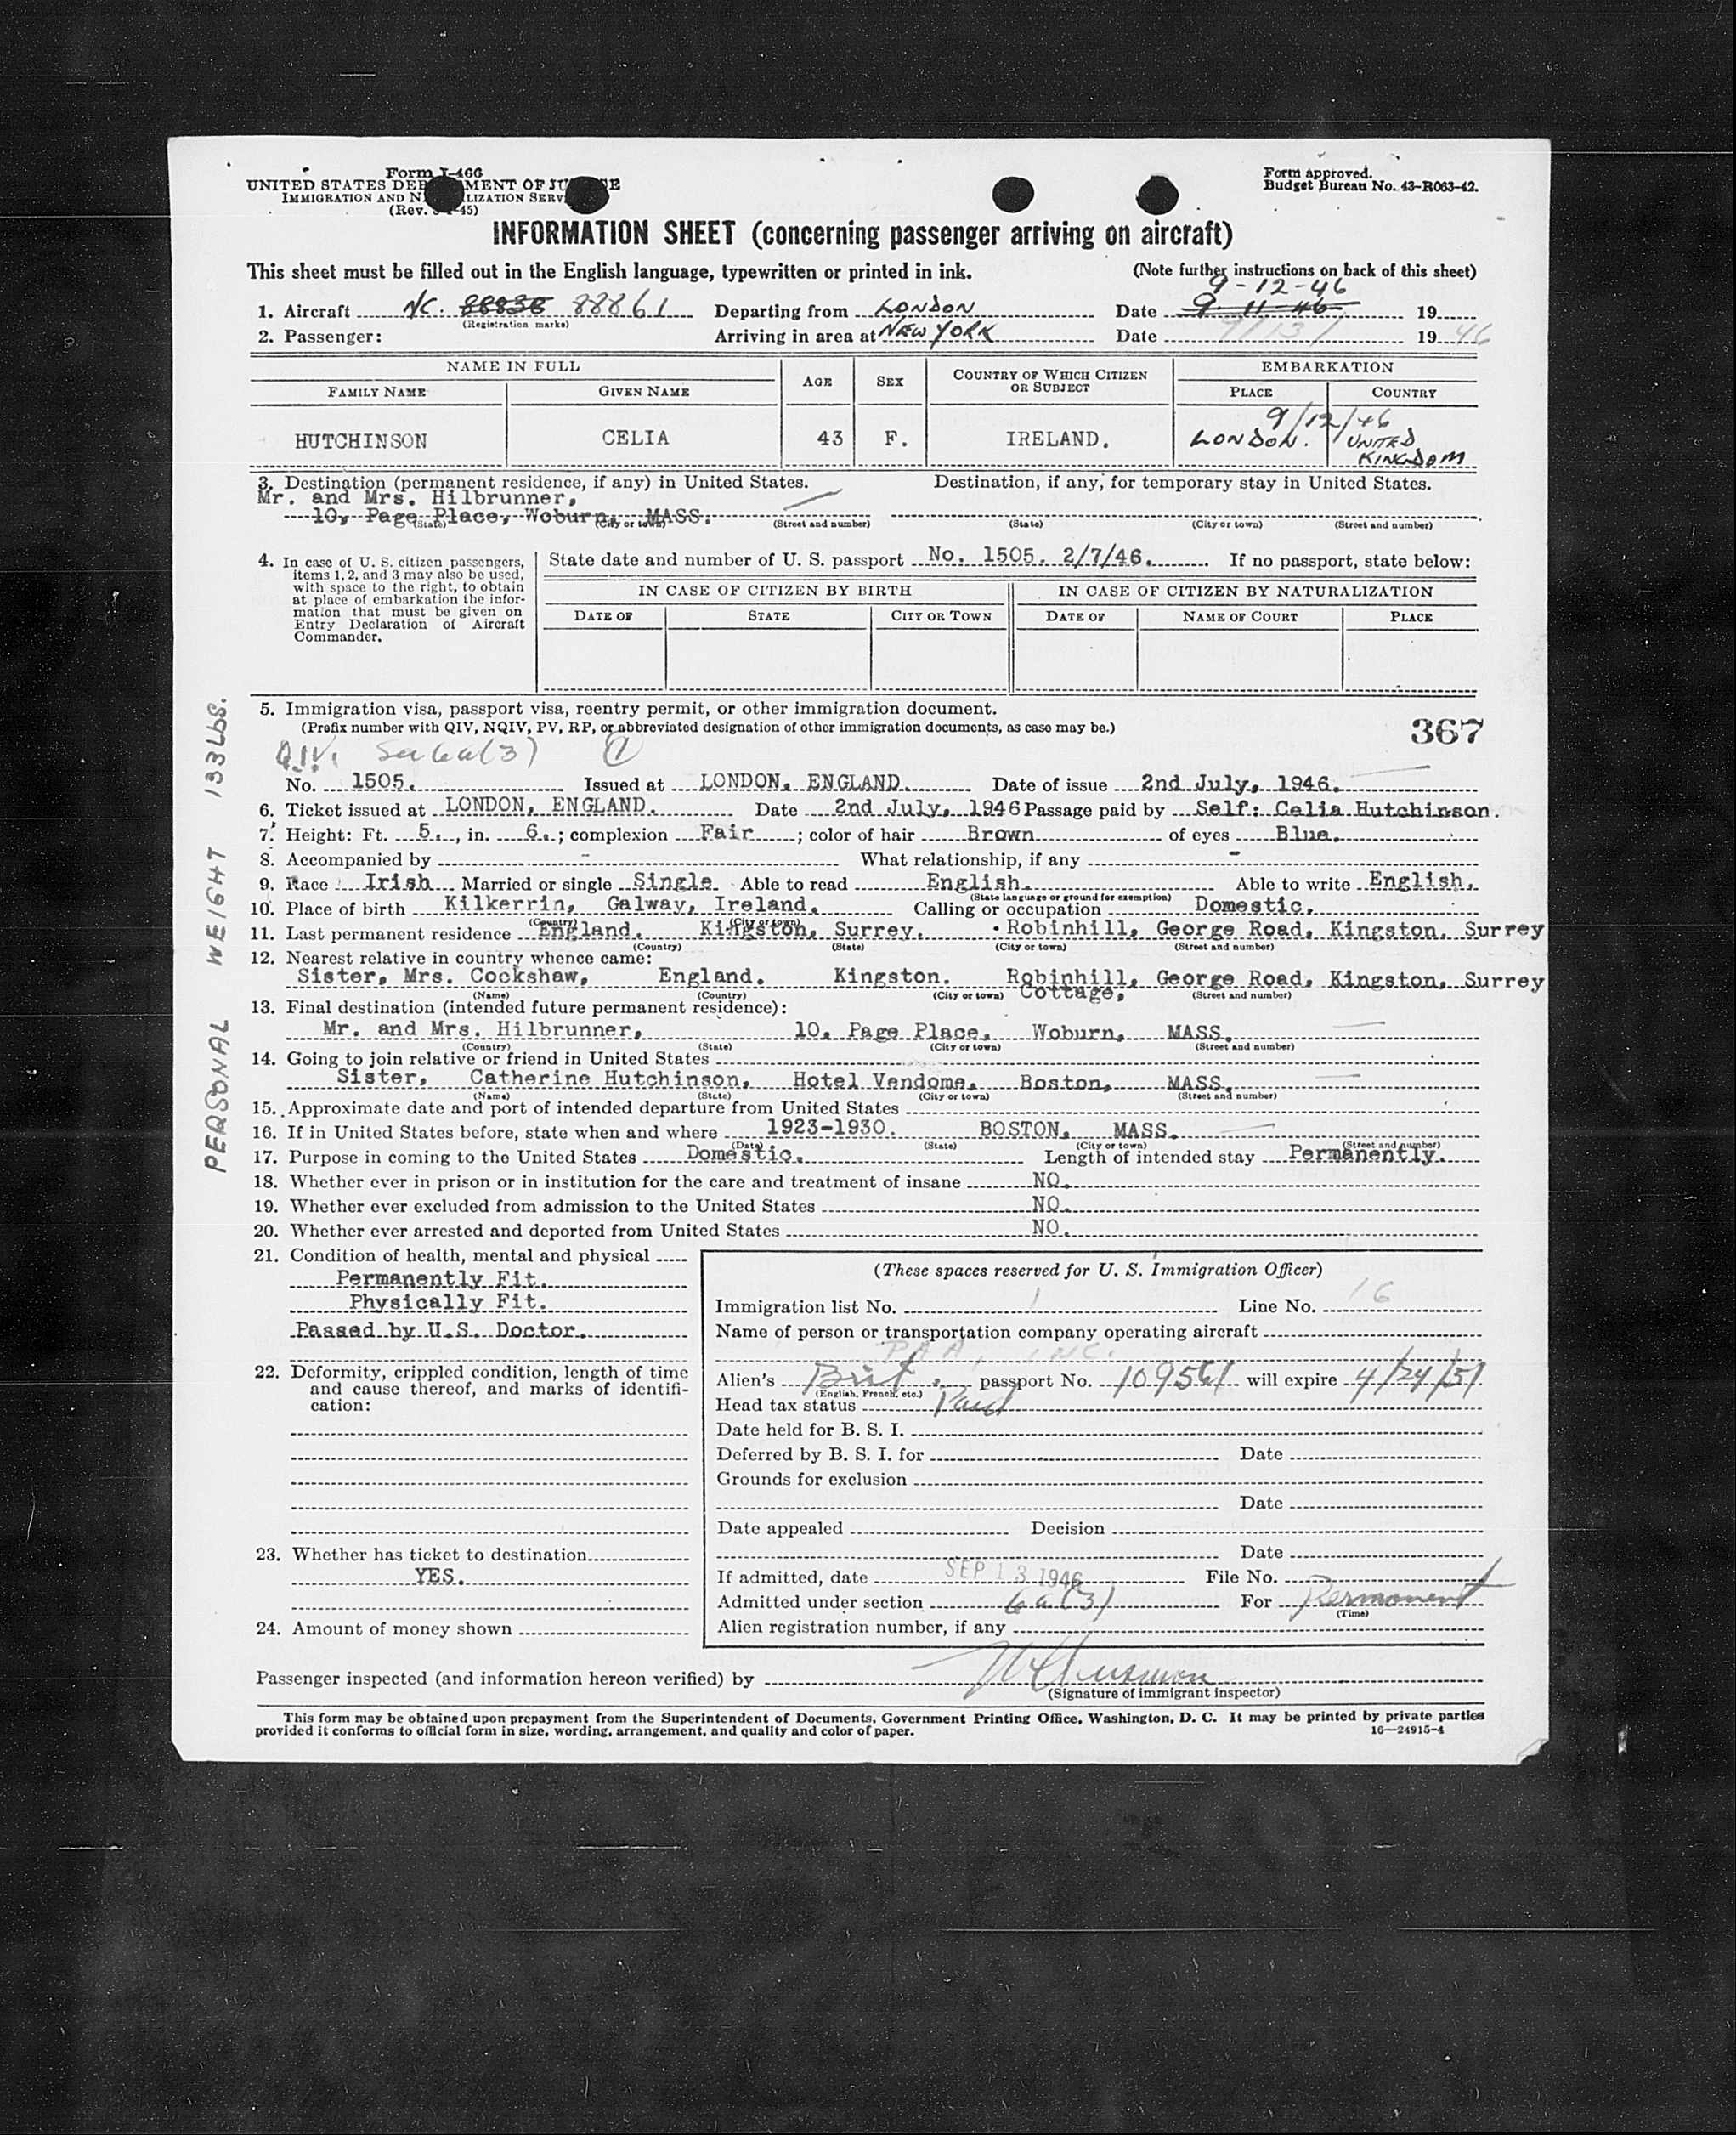 Form I-466
UNITED STATES DEPARTMENT OF JUSTICE
IMMIGRATION AND NATURALIZATION SERVICE
(Rev. 45)
Form approved.
Budget Bureau No. 43-R063-42.
INFORMATION SHEET (concerning passenger arriving on aircraft)
This sheet must be filled out in the English language, typewritten or printed in ink. (Note further instructions on back of this sheet)
9-12-46
1. Aircraft NC. 88838 88861 Departing from LONDON Date 9 11 46 19
(Registration marks)
2. Passenger: Arriving in area at NEW YORK Date 9/13/ 19 46
NAME IN FULL AGE SEX COUNTRY OF WHICH CITIZEN OR SUBJECT EMBARKATION
FAMILY NAME GIVEN NAME PLACE COUNTRY
9/12/46
HUTCHINSON CELIA 43 F. IRELAND. LONDON. UNITED
KINGDOM
3. Destination (permanent residence, if any) in United States. Destination, if any, for temporary stay in United States.
Mr. and Mrs. Hilbrunner,
10, Page Place, Woburn, MASS.
(State) (City or town) (Street and number) (State) (City or town) (Street and number)
4. In case of U. S. citizen passengers,
items 1, 2, and 3 may also be used,
with space to the right, to obtain
at place of embarkation the infor-
mation that must be given on
Entry Declaration of Aircraft
Commander.
State date and number of U. S. passport No. 1505. 2/7/46. If no passport, state below:
IN CASE OF CITIZEN BY BIRTH IN CASE OF CITIZEN BY NATURALIZATION
DATE OF STATE CITY OR TOWN DATE OF NAME OF COURT PLACE
5. Immigration visa, passport visa, reentry permit, or other immigration document.
(Prefix number with QIV, NQIV, PV, RP, or abbreviated designation of other immigration documents, as case may be.) 367
Q.I.V. Sec 6a(3) 1
No. 1505. Issued at LONDON, ENGLAND. Date of issue 2nd July, 1946.
6. Ticket issued at LONDON, ENGLAND. Date 2nd July, 1946 Passage paid by Self: Celia Hutchinson.
7. Height: Ft. 5., in. 6.; complexion Fair; color of hair Brown of eyes Blue.
8. Accompanied by - What relationship, if any -
9. Race Irish Married or single Single Able to read English. Able to write English.
(State language or ground for exemption)
10. Place of birth Kilkerrin, Galway, Ireland. Calling or occupation Domestic.
(Country) (City or town)
11. Last permanent residence England. Kingston, Surrey. Robinhill, George Road, Kingston. Surrey
(Country) (State) (City or town) (Street and number)
12. Nearest relative in country whence came:
Sister, Mrs. Cockshaw, England. Kingston. Robinhill, George Road, Kingston, Surrey
(Name) (Country) (City or town) Cottage, (Street and number)
13. Final destination (intended future permanent residence):
Mr. and Mrs. Hilbrunner, 10, Page Place, Woburn, MASS.
(Country) (State) (City or town) (Street and number)
14. Going to join relative or friend in United States
Sister, Catherine Hutchinson, Hotel Vendome, Boston, MASS.
(Name) (State) (City or town) (Street and number)
15. Approximate date and port of intended departure from United States
16. If in United States before, state when and where 1923-1930. BOSTON, MASS.
(Date) (State) (City or town) (Street and number)
17. Purpose in coming to the United States Domestic. Length of intended stay Permanently.
18. Whether ever in prison or in institution for the care and treatment of insane NO.
19. Whether ever excluded from admission to the United States NO.
20. Whether ever arrested and deported from United States NO.
21. Condition of health, mental and physical
Permanently Fit.
Physically Fit.
Passed by U.S. Doctor.
22. Deformity, crippled condition, length of time
and cause thereof, and marks of identifi-
cation:
23. Whether has ticket to destination
YES.
24. Amount of money shown
(These spaces reserved for U. S. Immigration Officer)
Immigration list No. 1 Line No. 16
Name of person or transportation company operating aircraft
PAA, INC.
Alien's Brit. passport No. 109561 will expire 4/24/51
(English, French, etc.)
Head tax status Paid
Date held for B. S. I.
Deferred by B. S. I. for Date
Grounds for exclusion
Date
Date appealed Decision
Date
If admitted, date SEP 13 1946 File No.
Admitted under section 6a(3) For Permanent
(Time)
Alien registration number, if any
Passenger inspected (and information hereon verified) by
(Signature of immigrant inspector)
This form may be obtained upon prepayment from the Superintendent of Documents, Government Printing Office, Washington, D. C. It may be printed by private parties
provided it conforms to official form in size, wording, arrangement, and quality and color of paper. 16—24915-4
PERSONAL WEIGHT 133 LBS.